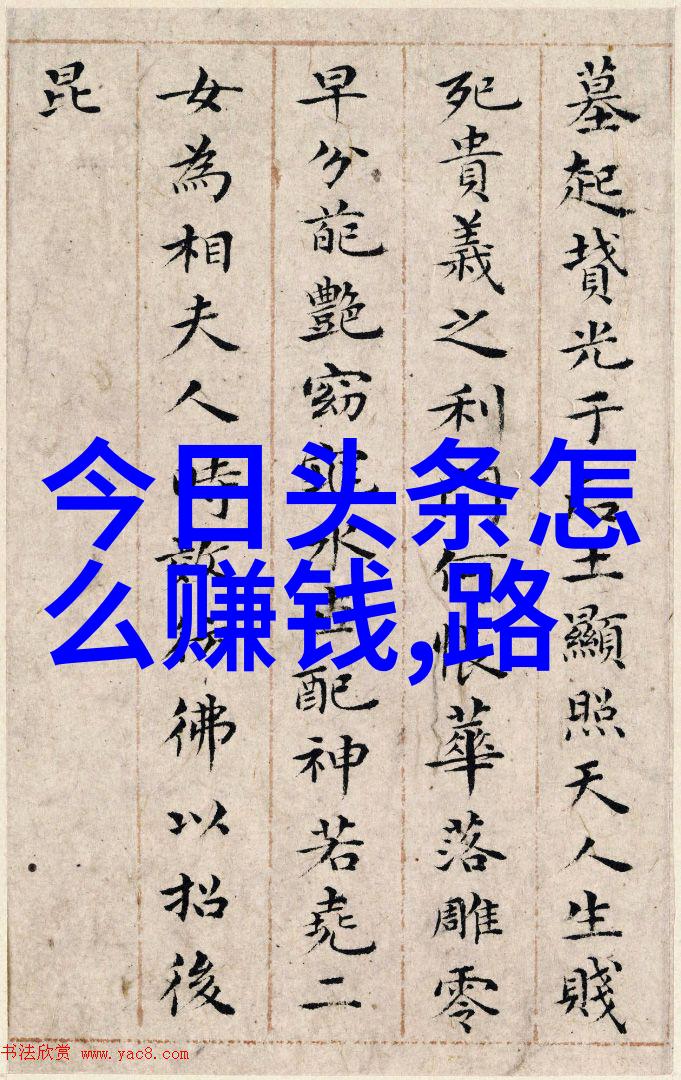 墓起墳光于后土顯照天人生賤
死貴義之利門何悵華落雕零
早分葩艷窈窕永世配神若堯二
女為相夫人時效彷彿以招後
昆
今日头条怎
么赚钱,路
书法欣赏 www.yac8.com